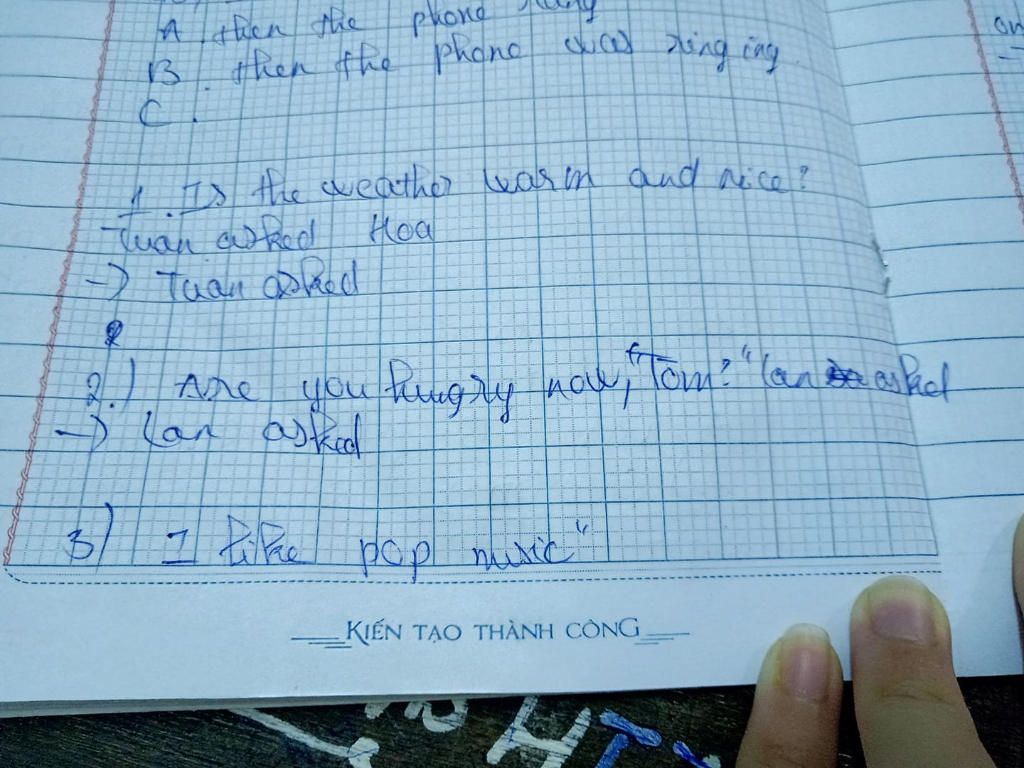 A. then the phone rung
B. then the phone was ringing
C.
1. Is the weather warm and nice?
Tuan asked Hoa
-> Tuan asked
2.) Are you hungry now, "Tom?" Lan asked
-> Lan asked
3) I like pop music"
KIẾN TẠO THÀNH CÔNG